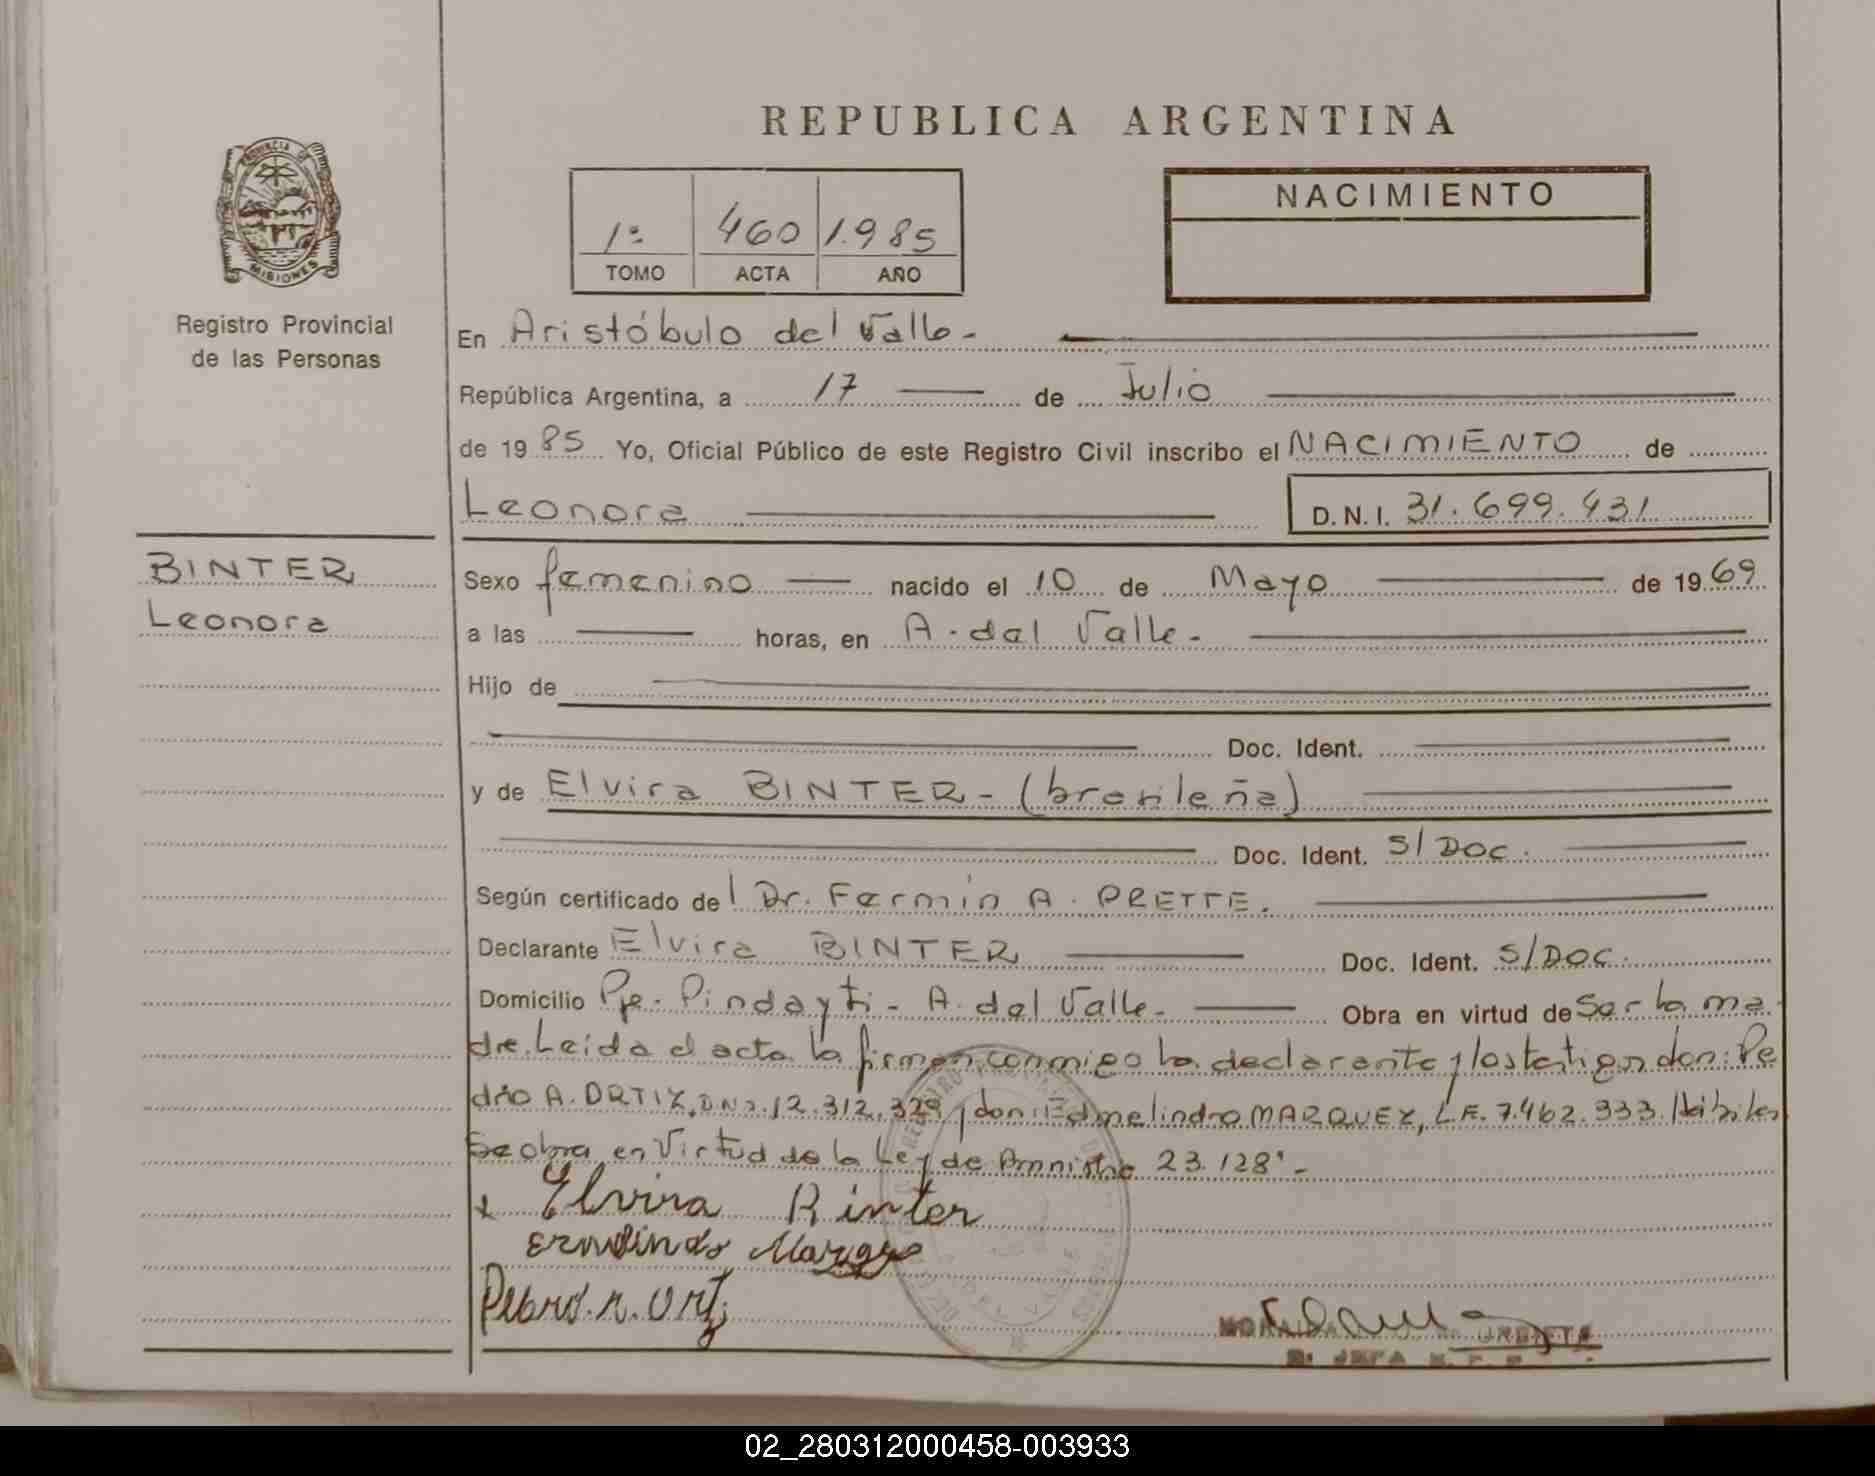 REPUBLICA ARGENTINA
PROVINCIA DE
MISIONES
Registro Provincial
de las Personas
1º 460 1.985
TOMO ACTA AÑO
NACIMIENTO
En Aristóbulo del Valle-
República Argentina, a 17 de Julio
de 1985 Yo, Oficial Público de este Registro Civil inscribo el NACIMIENTO de
Leonora D.N.I. 31.699.431
BINTER
Leonora
Sexo femenino nacido el 10 de Mayo de 1969
a las horas, en A. del Valle-
Hijo de
Doc. Ident.
y de Elvira BINTER- (brasileña)
Doc. Ident. S/Doc.
Según certificado del Dr. Fermín A. PRETTE.
Declarante Elvira BINTER Doc. Ident. S/Doc.
Domicilio Pje. Pindayti- A. del Valle- Obra en virtud de Ser la ma-
dre. Leída el acta la firman conmigo la declarante y los testigos don: Pe
dro A. ORTIZ, DNI. 12.312.329 y don: Edmelindro MARQUEZ, L.E. 7.462.333. Hábiles
Se obra en Virtud de la Ley de Amnistía 23.128'-
x Elvira Binter
Pedro. A. Orti
02_280312000458-003933